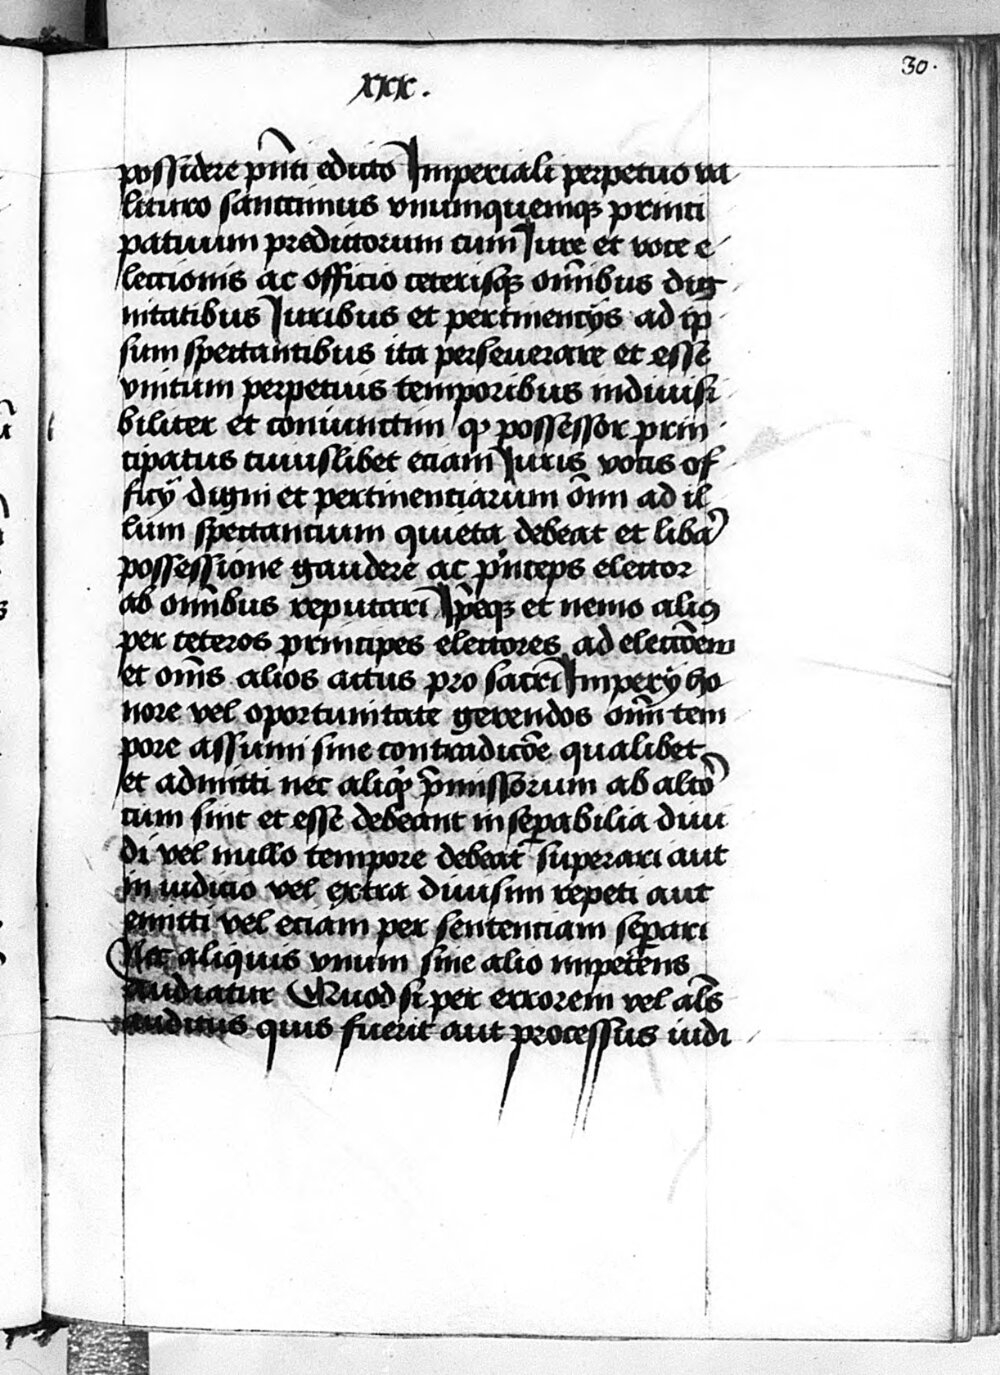 30.
xxx.
possidere pn̄ti edicto Imperiali perpetuo va
lituro sanccimus vnumquemqꝫ princi
patuum predictorum cum Iure et voce e
lectionis ac officio ceterisqꝫ om̄ibus dig
nitatibus Iuribus et pertinencijs ad ip
sum spectantibus ita perseuerare et esse
vnitum perpetuis temporibus indiuisi
biliter et coniunctim qꝫ possessor prin
cipatus cuiuslibet eciam Iuris vocis of
ficij digni et pertinenciarum om̄i ad il
lum spectancium quieta debeat et liba
possessione gaudere ac p'nceps elector
ab om̄ibus reputari Ip̄eqꝫ et nemo aliꝰ
per ceteros principes electores ad elecc̄oem
et om̄s alios actus pro sacri Imperij ho
nore vel oportunitate gerendos om̄i tem
pore assumi sine contradicc̄oe qualibet
et admitti nec aliqꝫ p̄missorum ab alt̄o
cum sint et esse debeant insep̲abilia diui
di vel nullo tempore debeat superari aut
in iudicio vel extra diuisim repeti aut
emitti vel eciam per sentenciam sep̲ari
Nec aliquis vnum sine alio impetens
audiatur Quod si per errorem vel al̄s
auditus quis fuerit aut processus iudi